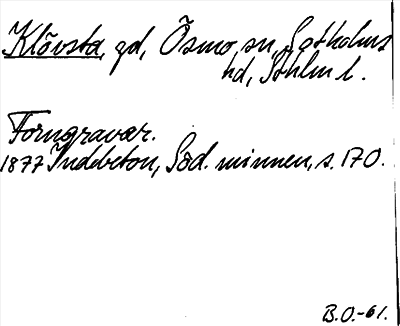 Klövsta, gd, Ösmo sn, Sotholms
hd, Sthlm l.
Forngravar.
1877 Indebetou, Söd. minnen, s. 170.
B.O.-61.